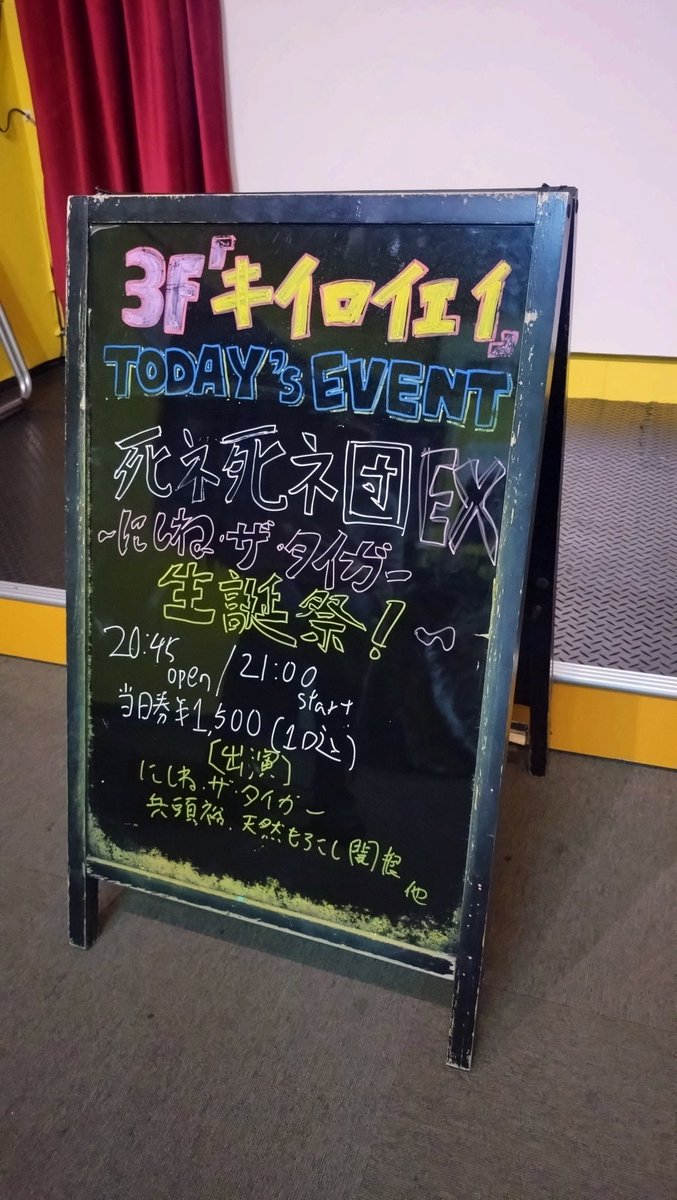 3F『キイロイエイ』
TODAY's EVENT
死ネ死ネ団EX
~にしね・ザ・タイガー
生誕祭!~
20:45 open / 21:00 start
当日券¥1,500(1D込)
〔出演〕
にしね・ザ・タイガー
兵頭裕、天然もろこし開催
他